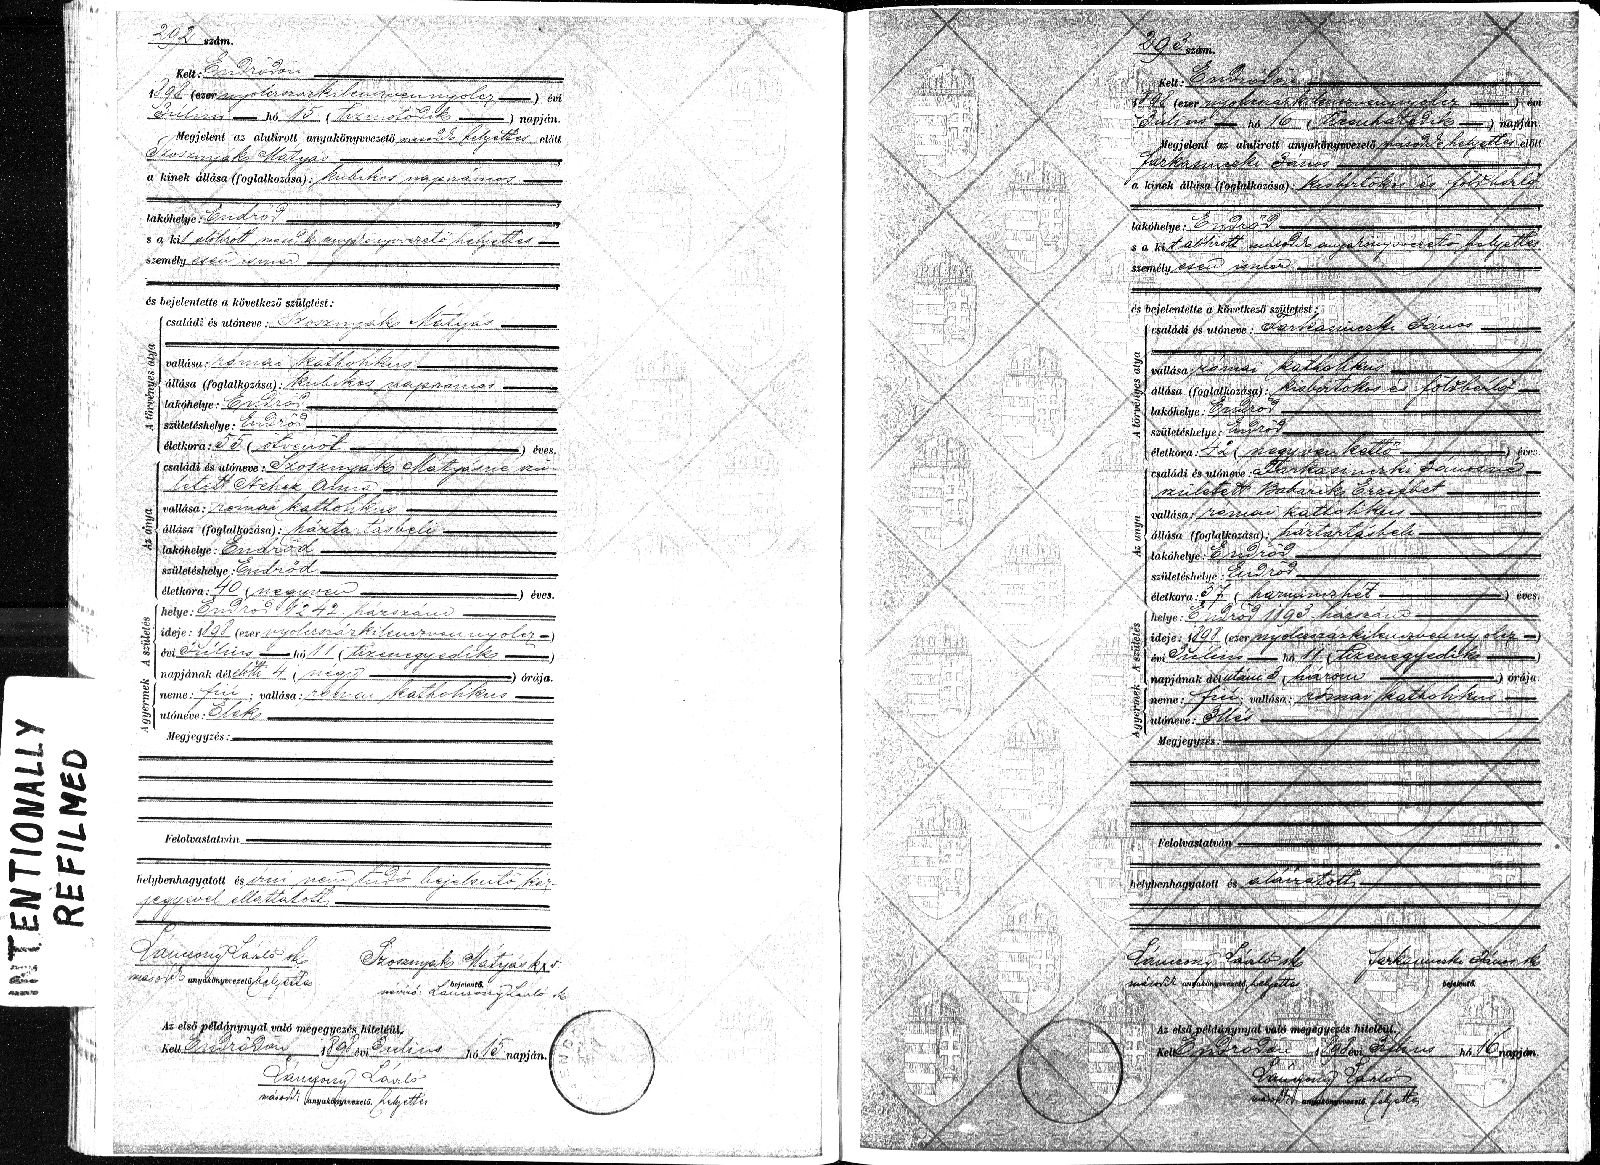 292 szám.
Kelt: Endrődön
1898 (ezer nyolczszázkilenczvennyolcz) évi
Július hó 15 (tizenötödik) napján.
Megjelent az alulirott anyakönyvvezető másodk helyettes előtt
Szosznyák Mátyás
a kinek állása (foglalkozása): kubikos napszámos
lakóhelye: Endrőd
s a kit alólirott másodk anyakönyvvezető helyettes
személyesen ismer
és bejelentette a következő születést:
A törvényes atya
családi és utóneve: Szosznyák Mátyás
vallása: római katholikus
állása (foglalkozása): kubikos napszámos
lakóhelye: Endrőd
születéshelye: Endrőd
életkora: 55 (ötvenöt) éves.
Az anya
családi és utóneve: Szosznyák Mátyásné szü-
letett Anna
vallása: római katholikus
állása (foglalkozása): háztartásbeli
lakóhelye: Endrőd
születéshelye: Endrőd
életkora: 40 (negyven) éves.
A születés
helye: Endrőd házszám
ideje: 1898 (ezer nyolczszázkilenczvennyolcz)
évi Július hó 11 (tizenegyedik)
napjának délelőtti 4 (négy) órája.
A gyermek
neme: fiú; vallása: római katholikus
utóneve: Elek
Megjegyzés:
Felolvastatván
helybenhagyatott és irni nem tudó bejelentő kéz-
jegyével elláttatott.
Lányony László sk
másodk anyakönyvvezető helyettes
Szosznyák Mátyás k x v.
bejelentő.
névíró: László sk
Az első példánynyal való megegyezés hiteléül.
Kelt Endrődön 1898 évi Július hó 15 napján.
László
másodk anyakönyvvezető. helyettes
293 szám.
Kelt: Endrődön
1898 (ezer nyolczszázkilenczvennyolcz) évi
Július hó 16 (tizenhatodik) napján.
Megjelent az alulirott anyakönyvvezető másodk helyettes előtt
Farkasinszki János
a kinek állása (foglalkozása): kisbirtokos és földbérlő
lakóhelye: Endrőd
s a kit alólirott másodk anyakönyvvezető helyettes
személyesen ismer
és bejelentette a következő születést:
A törvényes atya
családi és utóneve: Farkasinszki János
vallása: római katholikus
állása (foglalkozása): kisbirtokos és földbérlő
lakóhelye: Endrőd
születéshelye: Endrőd
életkora: 42 (negyvenkettő) éves.
Az anya
családi és utóneve: Farkasinszki Jánosné
született Babarik Erzsébet
vallása: római katholikus
állása (foglalkozása): háztartásbeli
lakóhelye: Endrőd
születéshelye: Endrőd
életkora: 37 (harminczhét) éves.
A születés
helye: Endrőd 1193 házszám
ideje: 1898 (ezer nyolczszázkilenczvennyolcz)
évi Július hó 11 (tizenegyedik)
napjának délutáni 3 (három) órája.
A gyermek
neme: fiú; vallása: római katholikus
utóneve: Illés
Megjegyzés:
Felolvastatván
helybenhagyatott és aláiratott.
László sk
másodk anyakönyvvezető. helyettes
Farkasinszki János sk
bejelentő.
Az első példánynyal való megegyezés hiteléül.
Kelt Endrődön 1898 évi Július hó 16 napján.
László
másodk anyakönyvvezető. helyettes
INTENTIONALLY
REFILMED